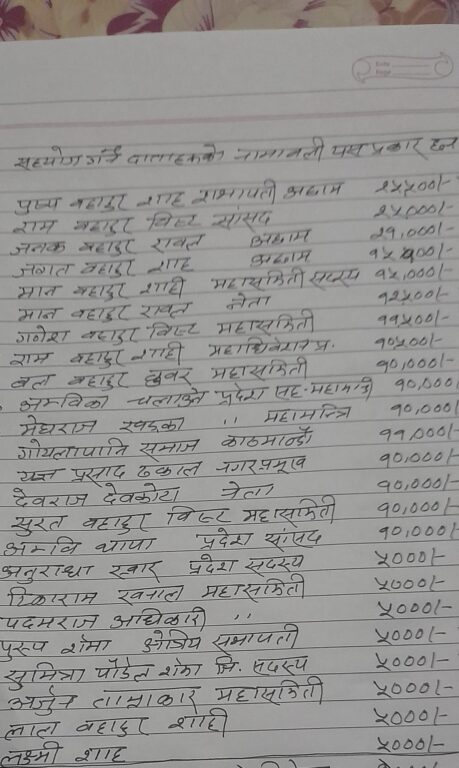 Date
Page
सहयोग गर्ने दाताहरुको नामावली यस प्रकार छन
पुष्प बहादुर शाह सभापती अछाम २५५००/-
राम बहादुर विष्ट सांसद २५०००/-
जनक बहादुर रावत अछाम २१,०००/-
जगत बहादुर शाह अछाम
मान बहादुर शाही महासमिती सदस्य १५,०००/-
मान बहादुर रावत नेता १२५००/-
गणेश बहादुर विष्ट महासमिती ११५००/-
राम बहादुर शाही महाधिवेशन प्र. १०५००/-
बल बहादुर कुवर महासमिती १०,०००/-
अम्विका चलाउने प्रदेश सह-महामन्त्रि १०,०००
मेघराज खड्का ,, महामन्त्रि १०,०००/-
गोयलापानि समाज काठमाण्डौ ११,०००/-
यज्ञ प्रसाद ढकाल नगरप्रमुख १०,०००/-
देवराज देवकोटा नेता १०,०००/-
सुरत बहादुर विष्ट महासमिती १०,०००/-
अम्वि थापा प्रदेश सांसद १०,०००/-
अनुराधा प्रदेश सदस्य ५०००/-
टिकाराम खनाल महासमिती ५०००/-
पदमराज अधिकारी ,, ५०००/-
पुरुष शर्मा क्षेत्रिय सभापती ५०००/-
सुमित्रा पौडेल शर्मा जि. सदस्य ५०००/-
अर्जुन ताम्राकार महासमिती ५०००/-
लाल बहादुर शाही ५०००/-
लक्ष्मी शाह ५०००/-